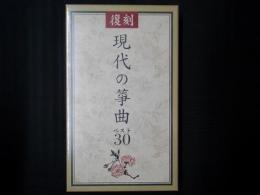 復刻
現代の箏曲
ベスト
30